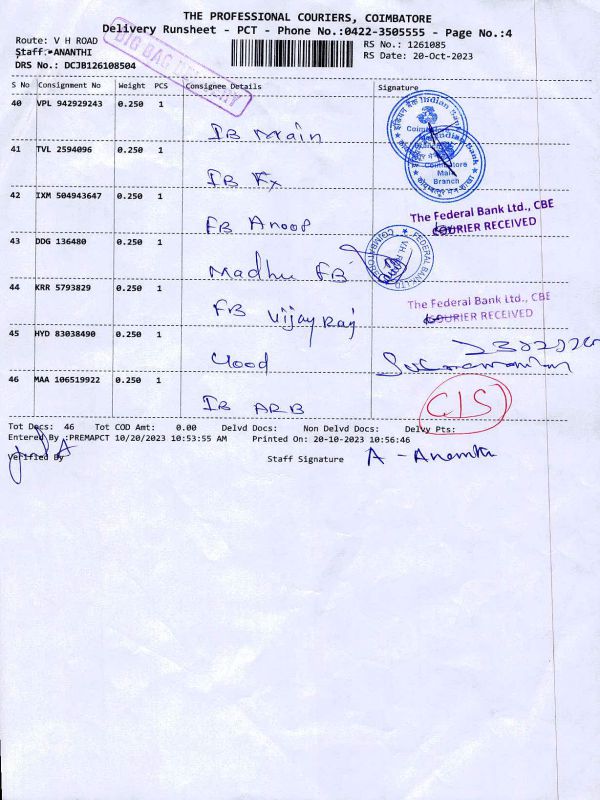 THE PROFESSIONAL COURIERS, COIMBATORE
Delivery Runsheet - PCT - Phone No.:0422-3505555 - Page No.:4
Route: V H ROAD
RS No.: 1261085
Staff: ANANTHI
RS Date: 20-Oct-2023
DRS No.: DCJB126108504
S No Consignment No Weight PCS Consignee Details Signature
40 VPL 942929243 0.250 1
IB Main
Indian Bank
Coimbatore
Main
Branch
41 TVL 2594096 0.250 1
IB Fx
42 IXM 504943647 0.250 1
FB Anoop
The Federal Bank Ltd., CBE
COURIER RECEIVED
43 DDG 136480 0.250 1
Madhu FB
FEDERAL BANK LTD
COIMBATORE
44 KRR 5793829 0.250 1
FB Vijay Raj
The Federal Bank Ltd., CBE
COURIER RECEIVED
45 HYD 83038490 0.250 1
46 MAA 106519922 0.250 1
IB ARB
Tot Docs: 46 Tot COD Amt: 0.00 Delvd Docs: Non Delvd Docs: Delvy Pts:
Entered By :PREMAPCT 10/20/2023 10:53:55 AM Printed On: 20-10-2023 10:56:46
Verified By Staff Signature